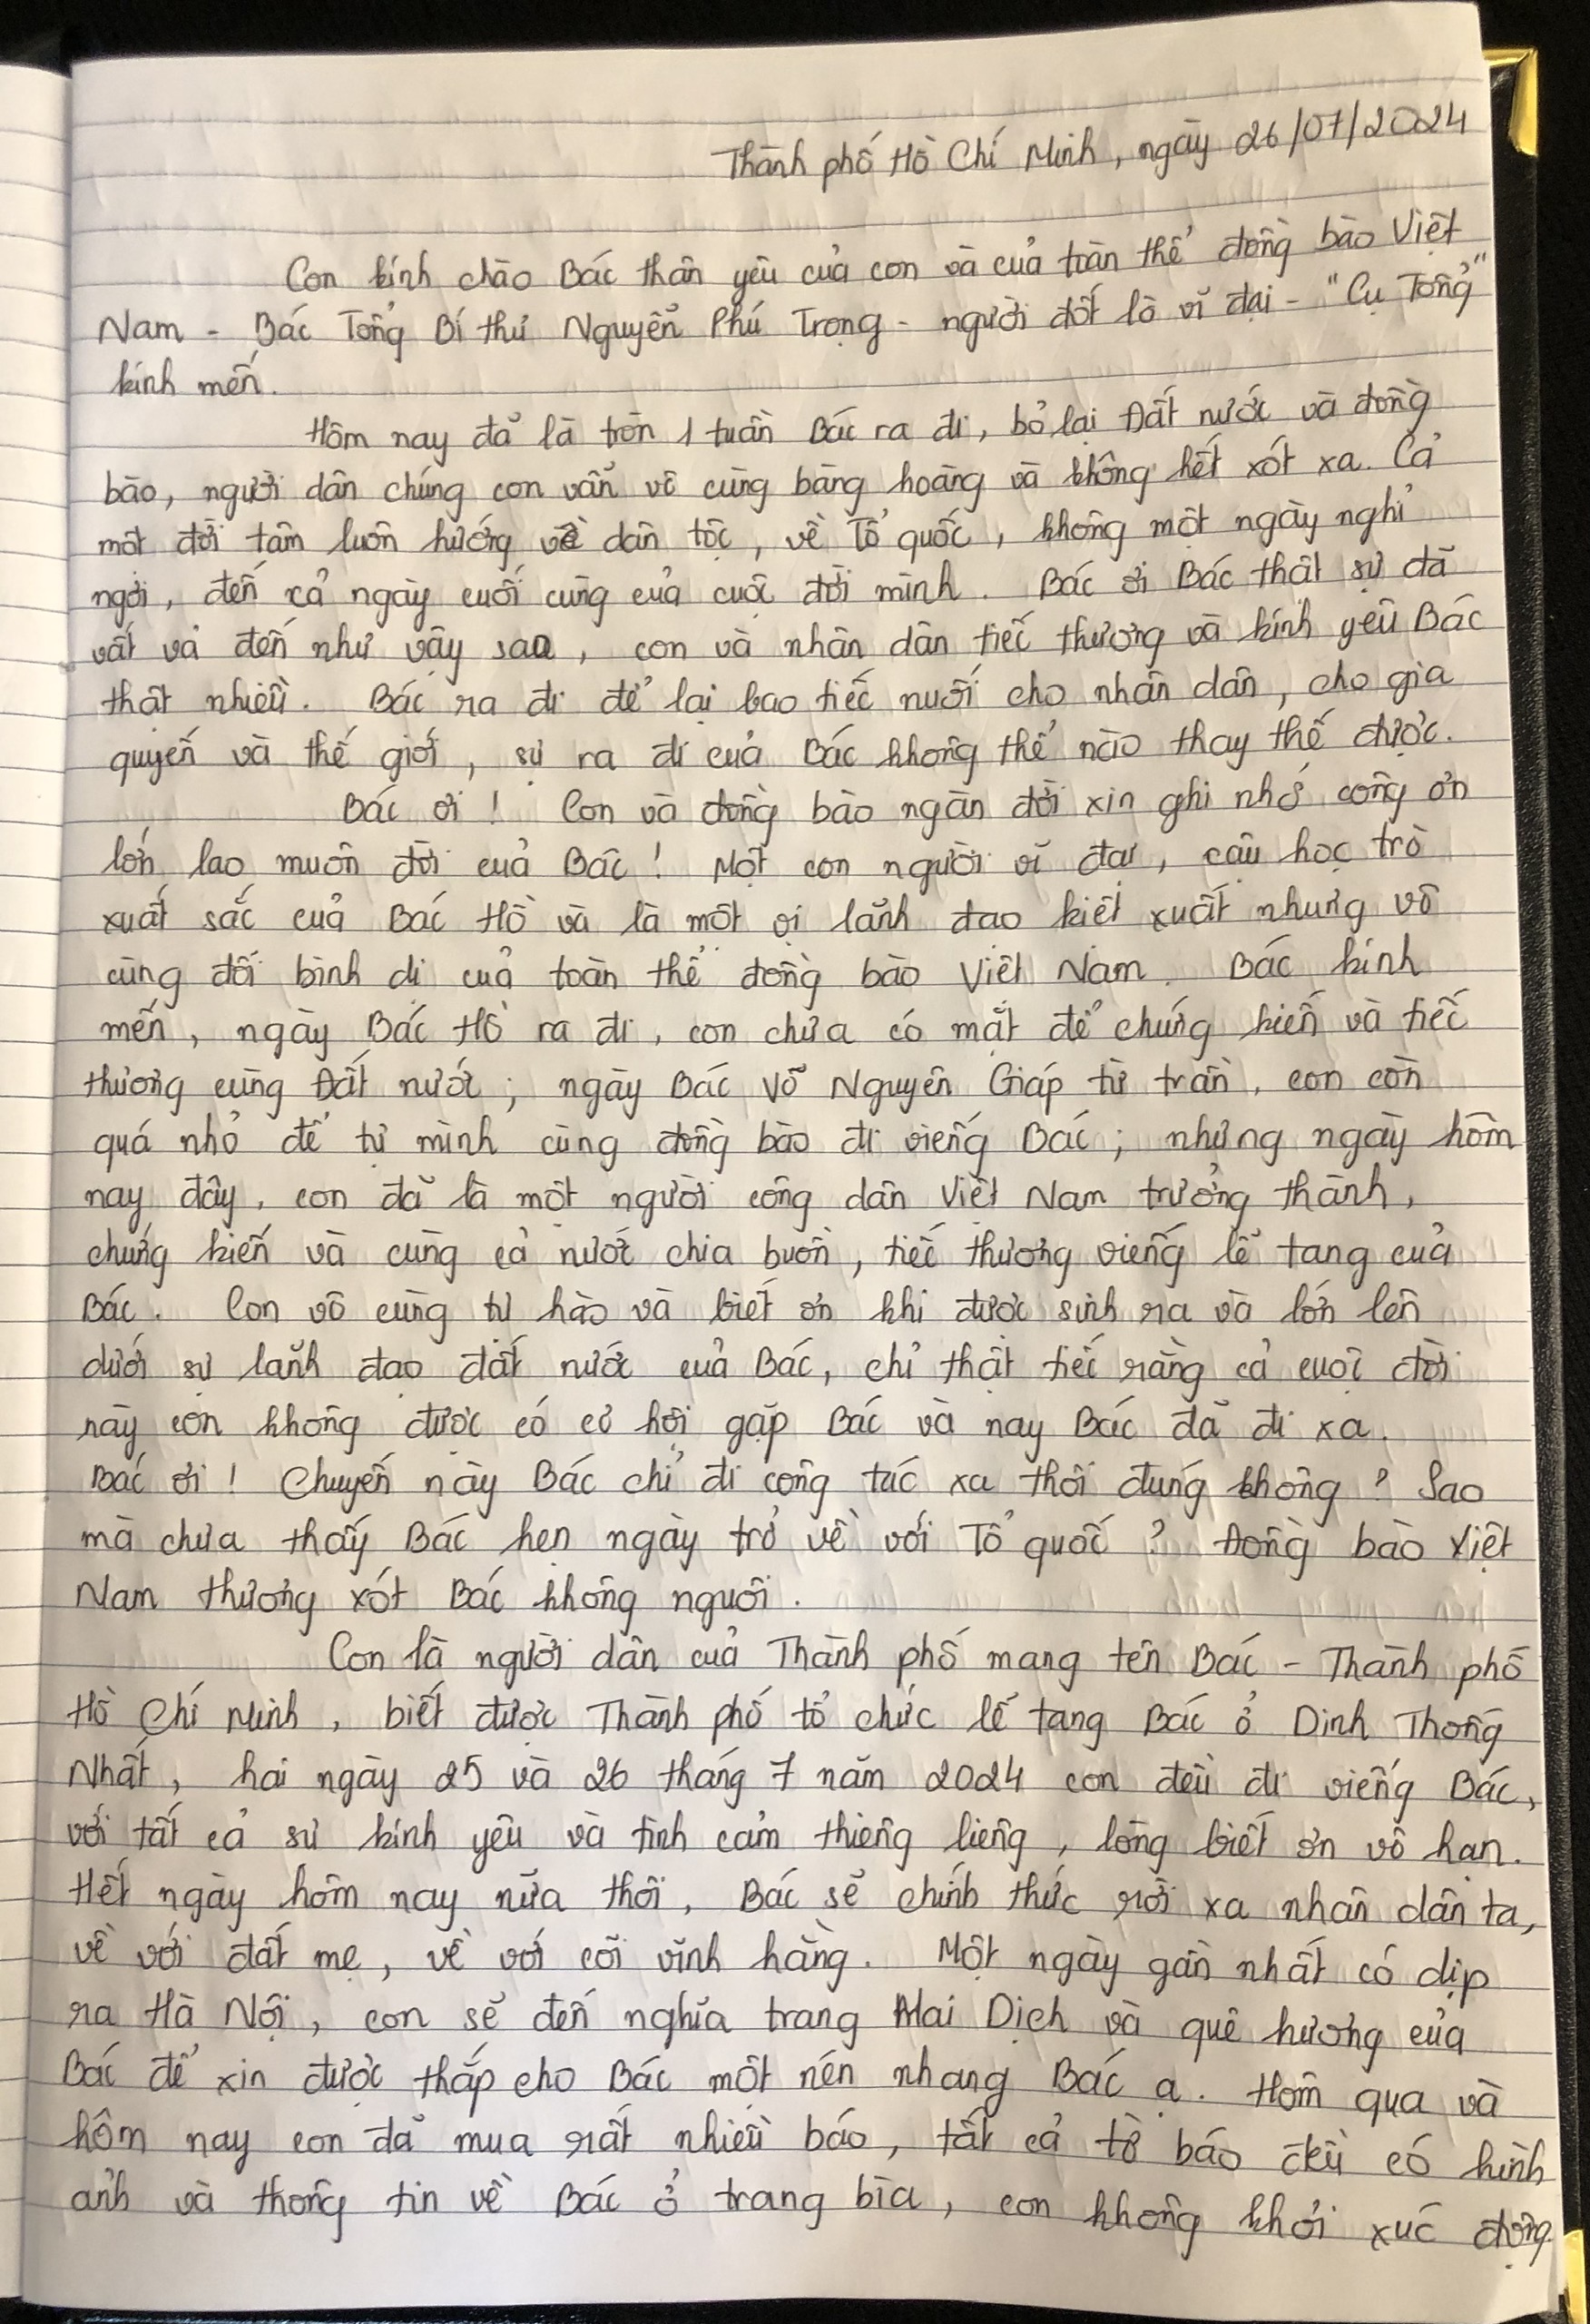 Thành phố Hồ Chí Minh, ngày 26/07/2024
Con kính chào Bác thân yêu của con và của toàn thể đồng bào Việt
Nam - Bác Tổng Bí thư Nguyễn Phú Trọng - người đốt lò vĩ đại - "Cụ Tổng"
kính mến.
Hôm nay đã là tròn 1 tuần Bác ra đi, bỏ lại Đất nước và đồng
bào, người dân chúng con vẫn vô cùng bàng hoàng và không hết xót xa. Cả
một đời tâm luôn hướng về dân tộc, về Tổ quốc, không một ngày nghỉ
ngơi, đến cả ngày cuối cùng của cuộc đời mình. Bác ơi Bác thật sự đã
vất vả đến như vậy sao, con và nhân dân tiếc thương và kính yêu Bác
thật nhiều. Bác ra đi để lại bao tiếc nuối cho nhân dân, cho gia
quyến và thế giới, sự ra đi của Bác không thể nào thay thế được.
Bác ơi! Con và đồng bào ngàn đời xin ghi nhớ công ơn
lớn lao muôn đời của Bác! Một con người vĩ đại, cậu học trò
xuất sắc của Bác Hồ và là một vị lãnh đạo kiệt xuất nhưng vô
cùng đối bình dị của toàn thể đồng bào Việt Nam. Bác kính
mến, ngày Bác Hồ ra đi, con chưa có mặt để chứng kiến và tiếc
thương cùng Đất nước; ngày Bác Võ Nguyên Giáp từ trần, con còn
quá nhỏ để tự mình cùng đồng bào đi viếng Bác; nhưng ngày hôm
nay đây, con đã là một người công dân Việt Nam trưởng thành,
chứng kiến và cùng cả nước chia buồn, tiếc thương viếng lễ tang của
Bác. Con vô cùng tự hào và biết ơn khi được sinh ra và lớn lên
dưới sự lãnh đạo đất nước của Bác, chỉ thật tiếc rằng cả cuộc đời
này con không được có cơ hội gặp Bác và nay Bác đã đi xa.
Bác ơi! Chuyến này Bác chỉ đi công tác xa thôi đúng không? Sao
mà chưa thấy Bác hẹn ngày trở về với Tổ quốc? Đồng bào Việt
Nam thương xót Bác không nguôi.
Con là người dân của Thành phố mang tên Bác - Thành phố
Hồ Chí Minh, biết được Thành phố tổ chức lễ tang Bác ở Dinh Thống
Nhất, hai ngày 25 và 26 tháng 7 năm 2024 con đều đi viếng Bác,
với tất cả sự kính yêu và tình cảm thiêng liêng, lòng biết ơn vô hạn.
Hết ngày hôm nay nữa thôi, Bác sẽ chính thức rời xa nhân dân ta,
về với đất mẹ, về với cõi vĩnh hằng. Một ngày gần nhất có dịp
ra Hà Nội, con sẽ đến nghĩa trang Mai Dịch và quê hương của
Bác để xin được thắp cho Bác một nén nhang Bác ạ. Hôm qua và
hôm nay con đã mua rất nhiều báo, tất cả tờ báo đều có hình
ảnh và thông tin về Bác ở trang bìa, con không khỏi xúc động